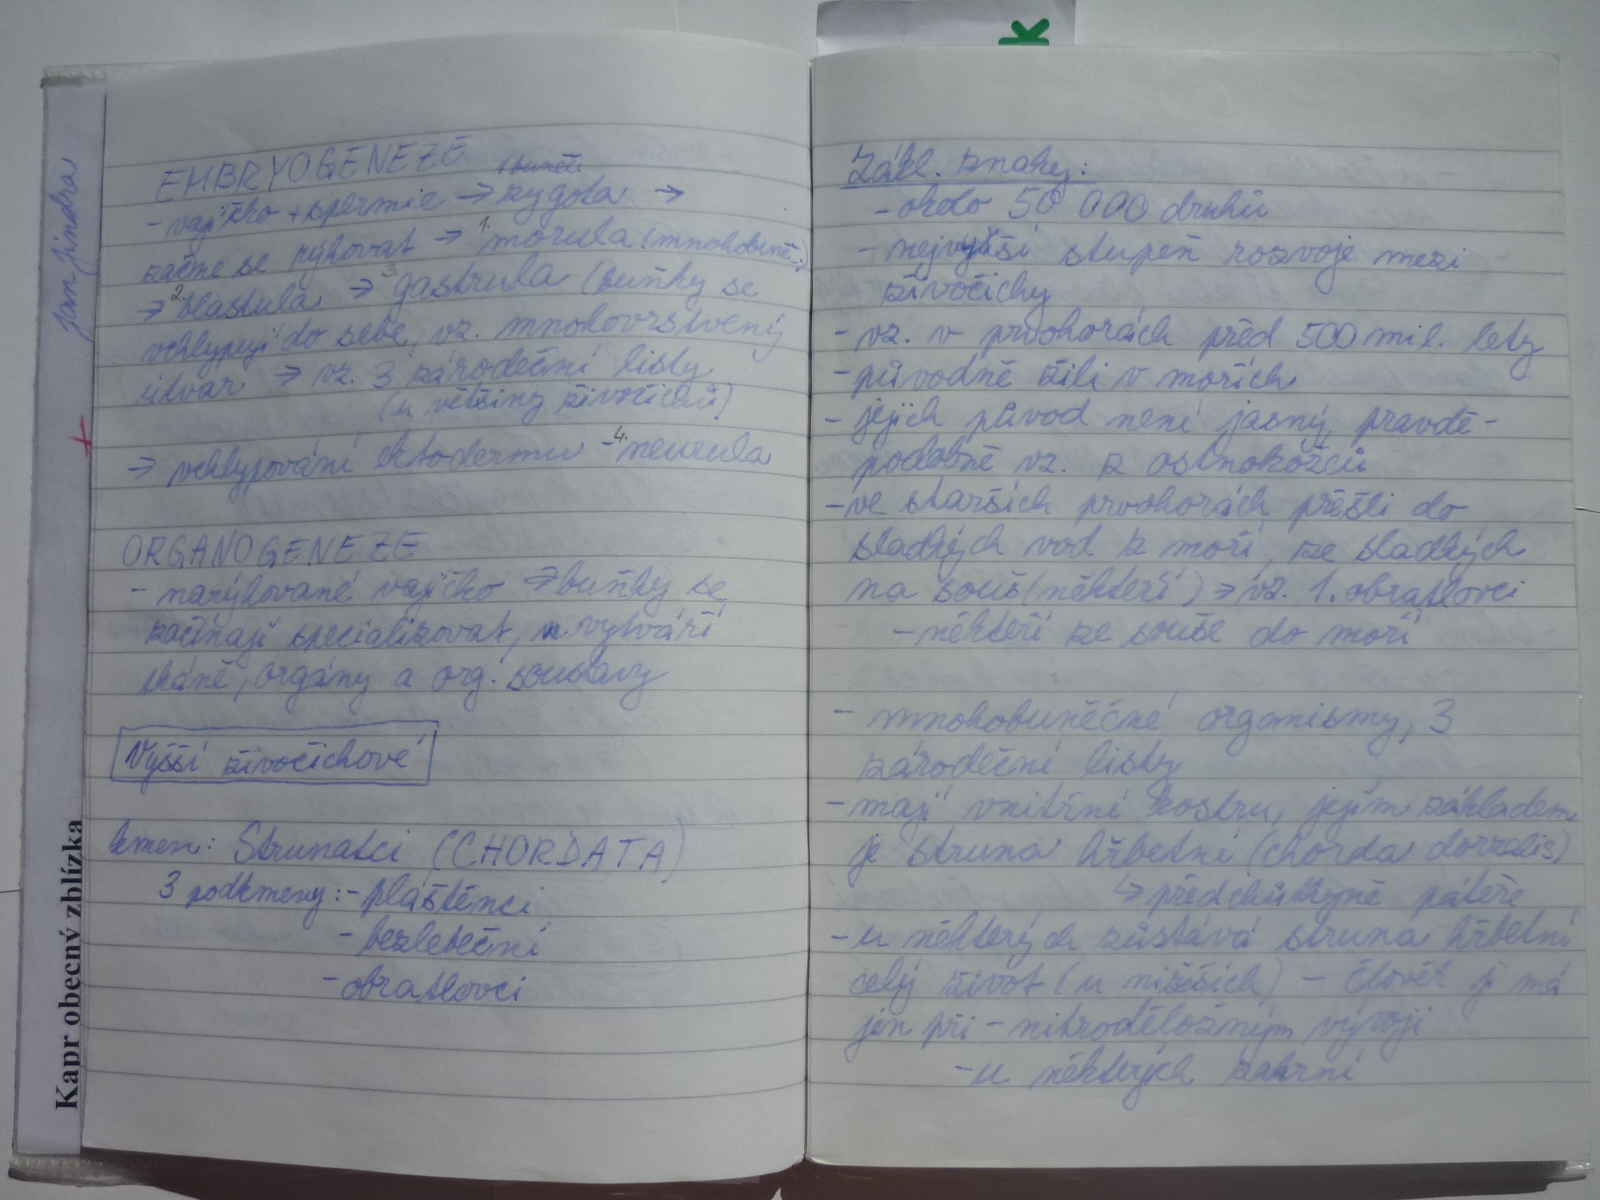 EMBRYOGENEZE
- vajíčko + spermie → zygota →
začne se rýhovat → 1. morula (mnohobuněč.)
→ 2. blastula → 3. gastrula (buňky se
vchlypují do sebe, vz. mnohovrstvený
útvar → vz. 3 zárodeční listy
(u většiny živočichů)
→ vchlypování ektodermu - 4. neurula
ORGANOGENEZE
- narýhované vajíčko → buňky se
začínají specializovat, vytváří
tkáně, orgány a org. soustavy
Vyšší živočichové
kmen: Strunatci (CHORDATA)
3 podkmeny: - pláštěnci
- bezlebeční
- obratlovci
Zákl. znaky:
- okolo 50 000 druhů
- nejvyšší stupeň rozvoje mezi
živočichy
- vz. v prvohorách před 500 mil. lety
- původně žili v mořích
- jejich původ není jasný, pravdě-
podobně vz. z ostnokožců
- ve starších prvohorách přešli do
sladkých vod z moří, ze sladkých
na souš (někteří) → vz. 1. obratlovci
- někteří ze souše do moří
- mnohobuněčné organismy, 3
zárodeční listy
- mají vnitřní kostru, jejím základem
je struna hřbetní (chorda dorzalis)
↳ předchůdkyně páteře
- u některých zůstává struna hřbetní
celý život (u nižších) - člověk ji má
jen při - nitroděložním vývoji
- u některých zakrní
Jan Jindra
Kapr obecný zblízka
K